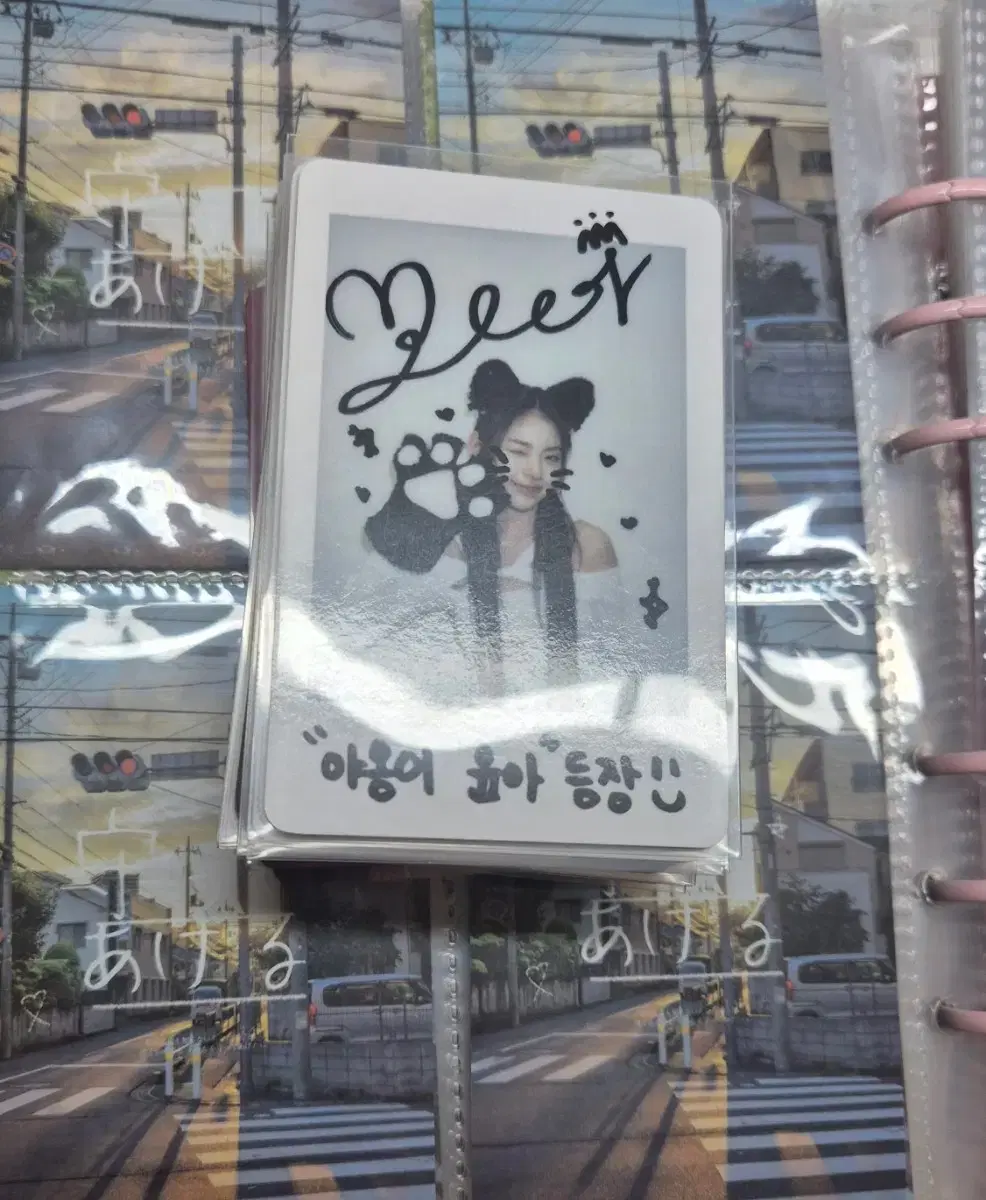 あけ
"야옹이 윤아" 등장!!
あける
あける